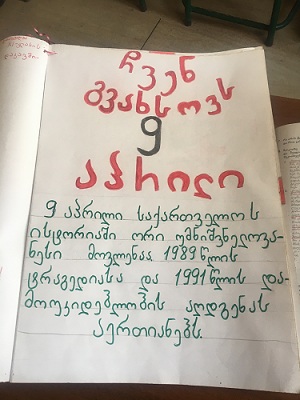 ჩვენ
გვახსოვს
9
აპრილი
9 აპრილი საქართველოს
ისტორიაში ორი უმნიშვნელოვა-
ნესი მოვლენაა 1989 წლის
ტრაგედიასა და 1991 წლის და-
მოუკიდებლობის აღდგენას
აერთიანებს.